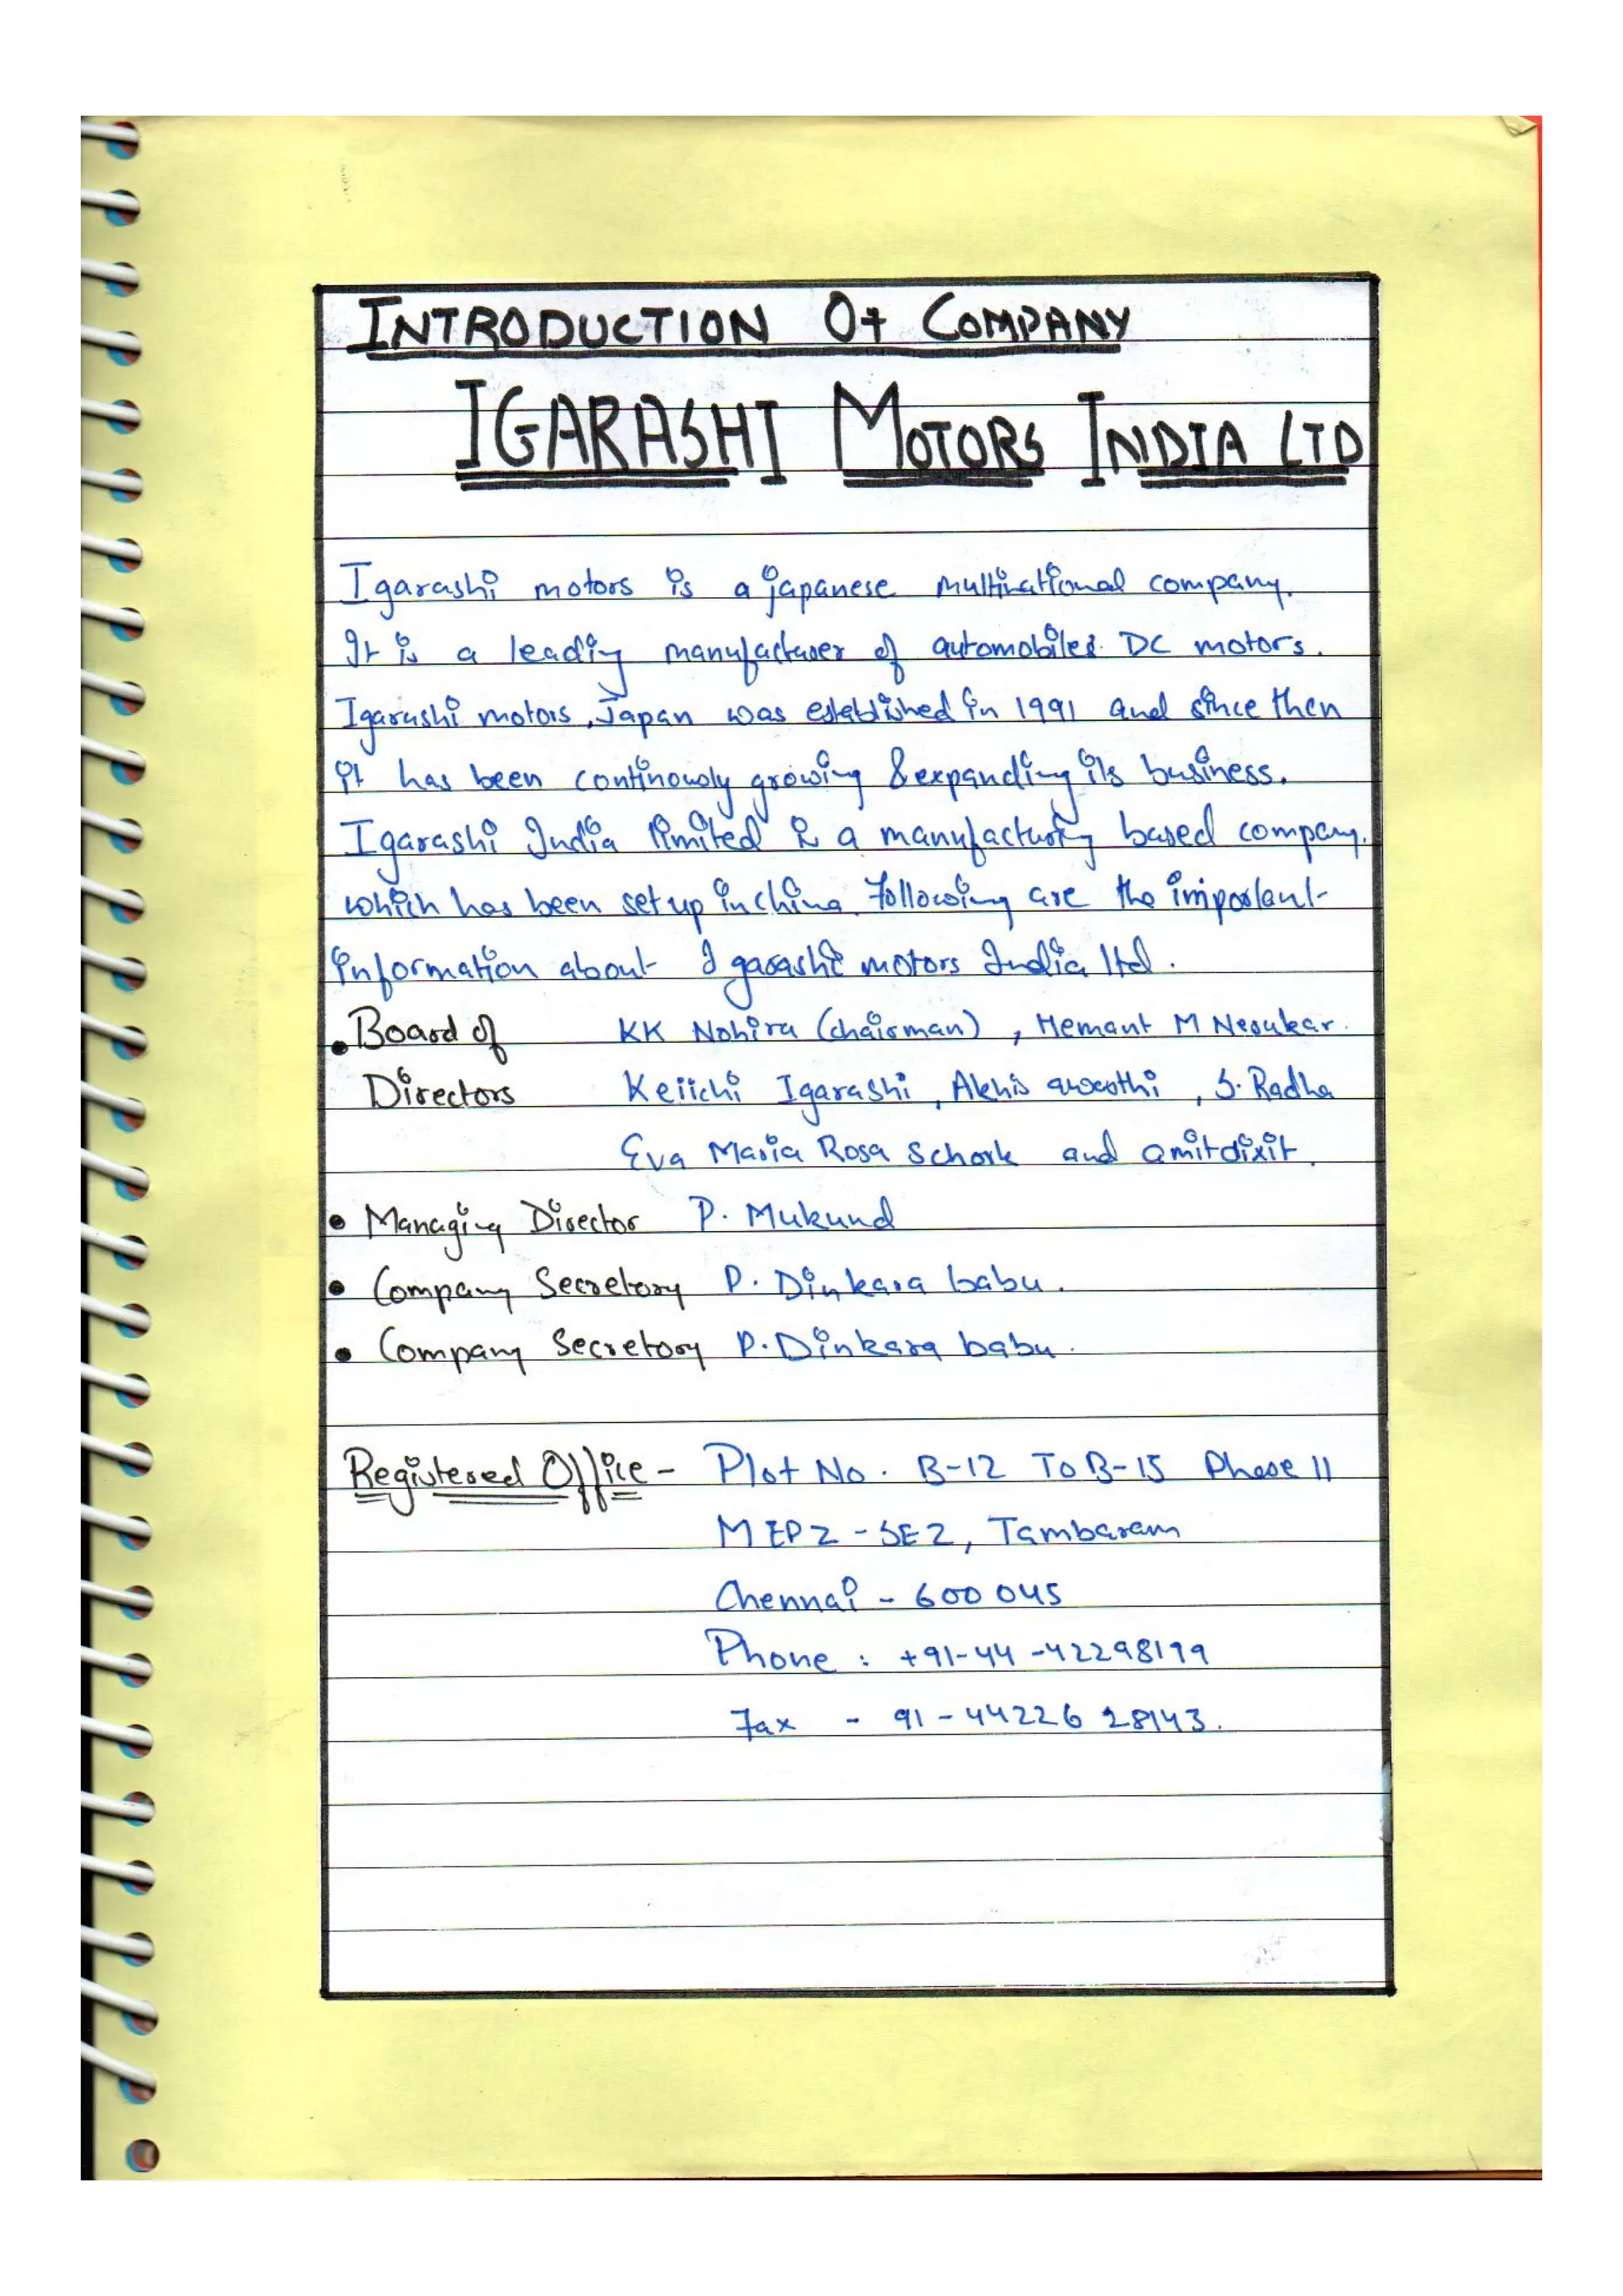 INTRODUCTION Of COMPANY
IGARASHI MOTORS INDIA LTD
Igarashi motors is a japanese multinational company.
It is a leading manufacturer of automobiles DC motors.
Igarashi motors, Japan was established in 1991 and since then
it has been continously growing & expanding its business.
Igarashi India limited is a manufacturing based company.
which has been setup in china. Following are the important
information about Igarashi motors India ltd.
• Board of KK Nohira (chairman), Hemant M Nerukar.
Directors Keiichi Igarashi, Akhis awasthi, S. Radha
Eva Maria Rosa Schork and amit dixit.
• Managing Director P. Mukund
• Company Secretory P. Dinkara babu.
• Company Secretory P. Dinkara babu.
Registered Office - Plot No. B-12 To B-15 Phase II
MEPZ - SEZ, Tambaram
Chennai - 600 045
Phone : +91-44-42298199
Fax - 91-44226 28143.